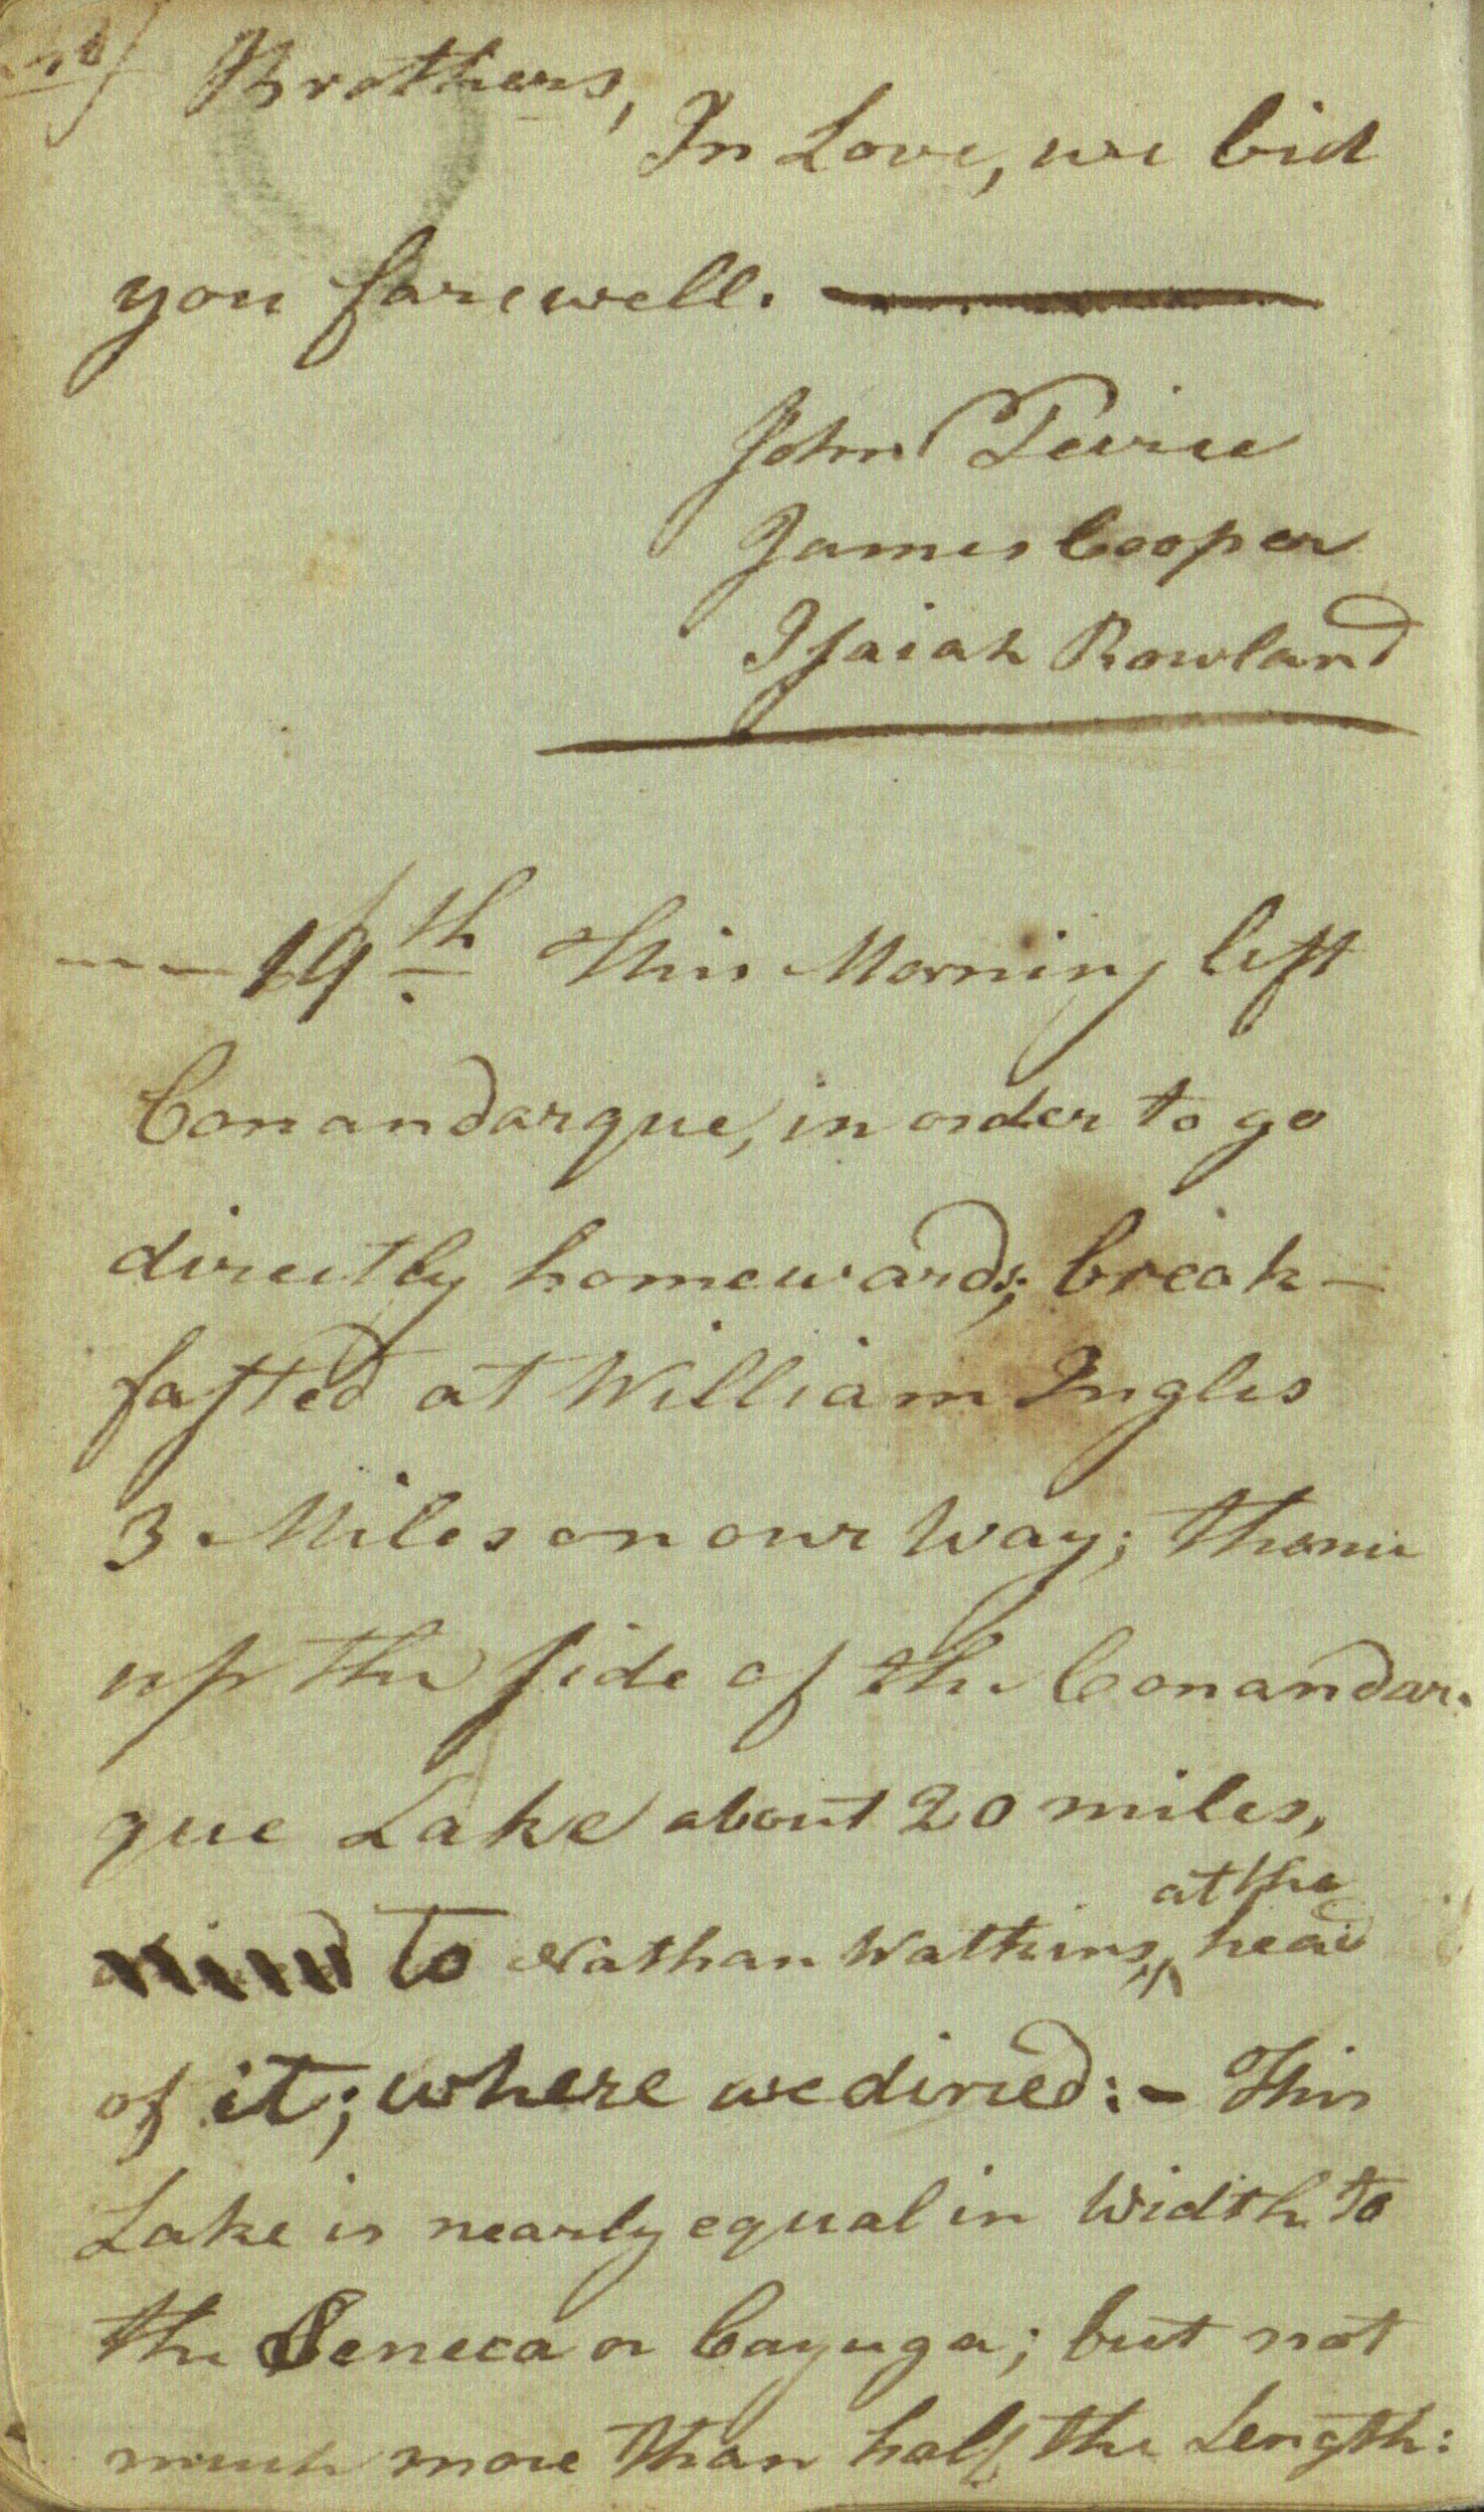 Brothers,
In Love, we bid
you farewell.
John Peirce
James Cooper
Isaiah Rowland
19th This Morning left
Conandarque, in order to go
directly homewards; break-
fasted at William Ingles
3 Miles on our Way; thence
up the side of the Conandar-
que Lake about 20 miles,
to Nathan Watkins, at the head
of it; where we dined:- This
Lake is nearly equal in Width to
the Seneca or Cayuga; but not
much more than half the Length: